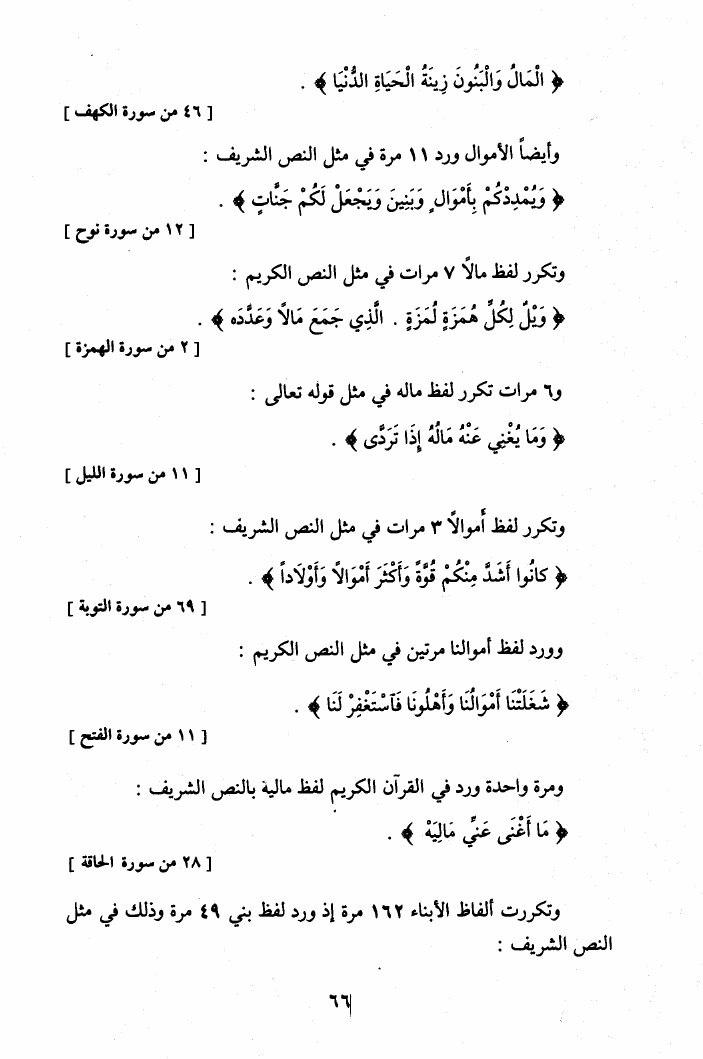 ﴿ الْمَالُ وَالْبَنُونَ زِينَةُ الْحَيَاةِ الدُّنْيَا ﴾ .
[ ٤٦ من سورة الكهف ]
وأيضاً الأموال ورد ١١ مرة في مثل النص الشريف :
﴿ وَيُمْدِدْكُمْ بِأَمْوَالٍ وَبَنِينَ وَيَجْعَلْ لَكُمْ جَنَّاتٍ ﴾ .
[ ١٢ من سورة نوح ]
وتكرر لفظ مالاً ٧ مرات في مثل النص الكريم :
﴿ وَيْلٌ لِكُلِّ هُمَزَةٍ لُمَزَةٍ . الَّذِي جَمَعَ مَالاً وَعَدَّدَه ﴾ .
[ ٢ من سورة الهمزة ]
و٦ مرات تكرر لفظ ماله في مثل قوله تعالى :
﴿ وَمَا يُغْنِي عَنْهُ مَالُهُ إِذَا تَرَدَّى ﴾ .
[ ١١ من سورة الليل ]
وتكرر لفظ أموالاً ٣ مرات في مثل النص الشريف :
﴿ كَانُوا أَشَدَّ مِنْكُمْ قُوَّةً وَأَكْثَرَ أَمْوَالاً وَأَوْلَاداً ﴾ .
[ ٦٩ من سورة التوبة ]
وورد لفظ أموالنا مرتين في مثل النص الكريم :
﴿ شَغَلَتْنَا أَمْوَالُنَا وَأَهْلُونَا فَآسْتَغْفِرْ لَنَا ﴾ .
[ ١١ من سورة الفتح ]
ومرة واحدة ورد في القرآن الكريم لفظ مالية بالنص الشريف :
﴿ مَا أَغْنَى عَنِّي مَالِيَهْ ﴾ .
[ ٢٨ من سورة الحاقة ]
وتكررت ألفاظ الأبناء ١٦٢ مرة إذ ورد لفظ بني ٤٩ مرة وذلك في مثل
النص الشريف :
٦٦